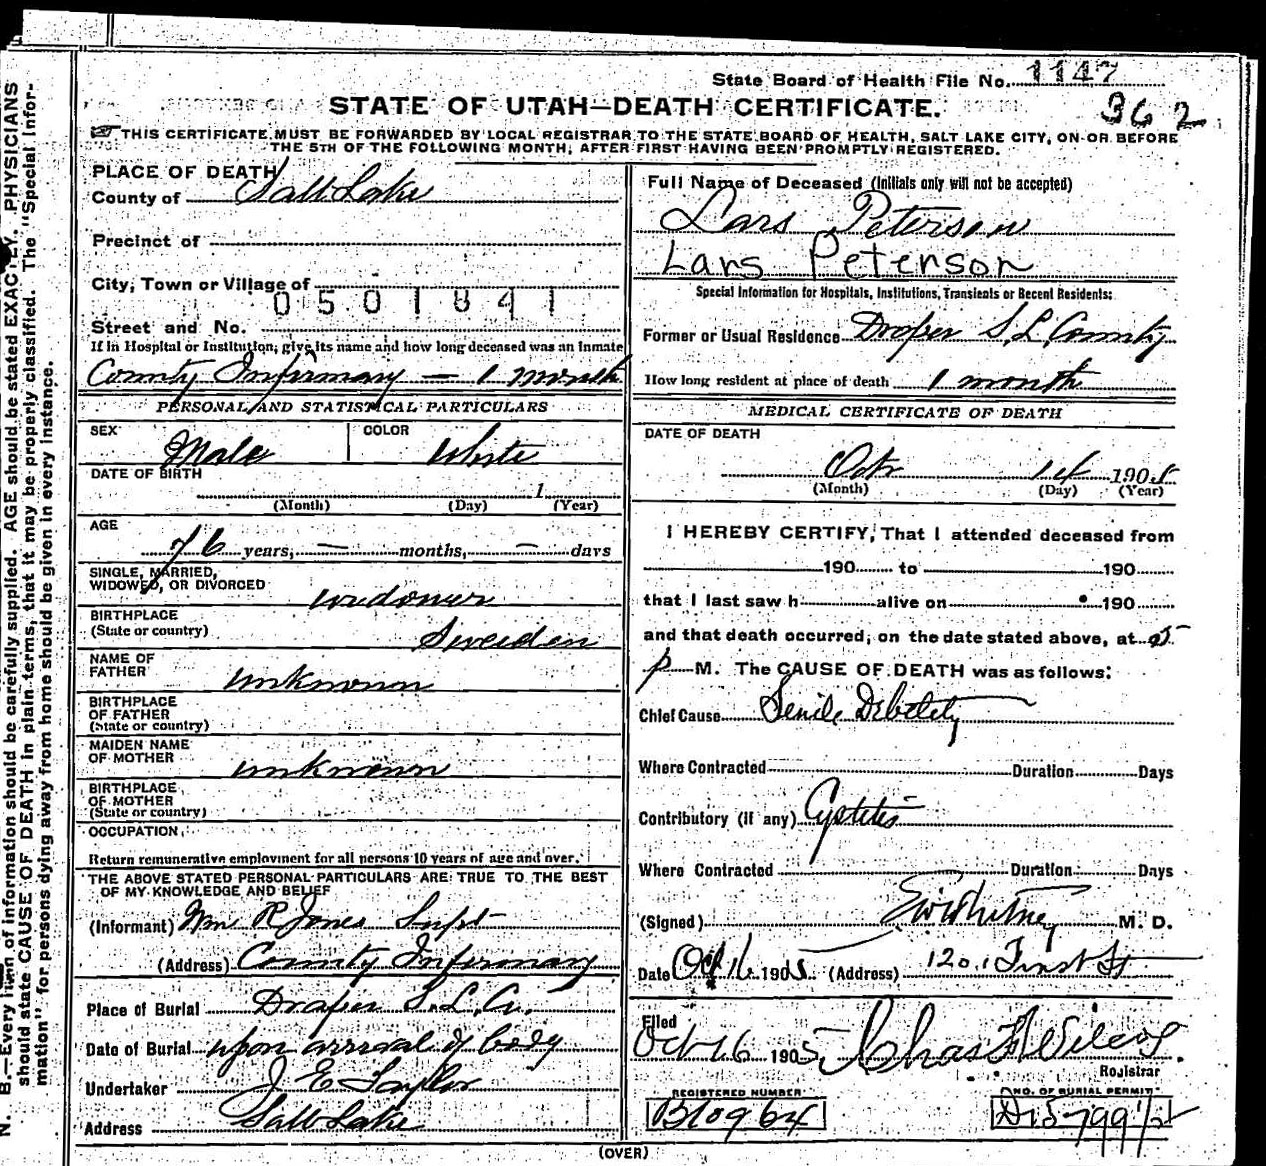 State Board of Health File No. 1147
STATE OF UTAH—DEATH CERTIFICATE.
362
THIS CERTIFICATE MUST BE FORWARDED BY LOCAL REGISTRAR TO THE STATE BOARD OF HEALTH, SALT LAKE CITY, ON OR BEFORE
THE 5TH OF THE FOLLOWING MONTH, AFTER FIRST HAVING BEEN PROMPTLY REGISTERED.
PLACE OF DEATH
County of Salt Lake
Precinct of
City, Town or Village of
0501841
Street and No.
If in Hospital or Institution, give its name and how long deceased was an Inmate
County Infirmary — 1 month
PERSONAL AND STATISTICAL PARTICULARS
SEX Male COLOR White
DATE OF BIRTH
1
(Month) (Day) (Year)
AGE
76 years, — months, — days
SINGLE, MARRIED,
WIDOWED, OR DIVORCED widower
BIRTHPLACE
(State or country) Sweden
NAME OF
FATHER unknown
BIRTHPLACE
OF FATHER
(State or country)
MAIDEN NAME
OF MOTHER unknown
BIRTHPLACE
OF MOTHER
(State or country)
OCCUPATION
Return remunerative employment for all persons 10 years of age and over.
THE ABOVE STATED PERSONAL PARTICULARS ARE TRUE TO THE BEST
OF MY KNOWLEDGE AND BELIEF
(Informant) Wm R Jones Supt
(Address) County Infirmary
Place of Burial Draper S.L.Co.
Date of Burial upon arrival of body
Undertaker J E Taylor
Address Salt Lake
Full Name of Deceased (Initials only will not be accepted)
Lars Peterson
Lars Peterson
Special Information for Hospitals, Institutions, Transients or Recent Residents:
Former or Usual Residence Draper S.L. County
How long resident at place of death 1 month
MEDICAL CERTIFICATE OF DEATH
DATE OF DEATH
Oct 14 1905
(Month) (Day) (Year)
I HEREBY CERTIFY, That I attended deceased from
190 to 190
that I last saw h alive on 190
and that death occurred, on the date stated above, at 5
p M. The CAUSE OF DEATH was as follows:
Chief Cause Senile Debility
Where Contracted Duration Days
Contributory (if any) Cystitis
Where Contracted Duration Days
(Signed) M. D.
Date Oct 16 1905 (Address) 1201 First St
Filed
Oct 16 1905 Chas Wilcox
Registrar
REGISTERED NUMBER
B10964
NO. OF BURIAL PERMIT
(OVER)
N. B.—Every item of information should be carefully supplied. AGE should be stated EXACTLY. PHYSICIANS
should state CAUSE OF DEATH in plain terms, that it may be properly classified. The "Special Infor-
mation" for persons dying away from home should be given in every instance.